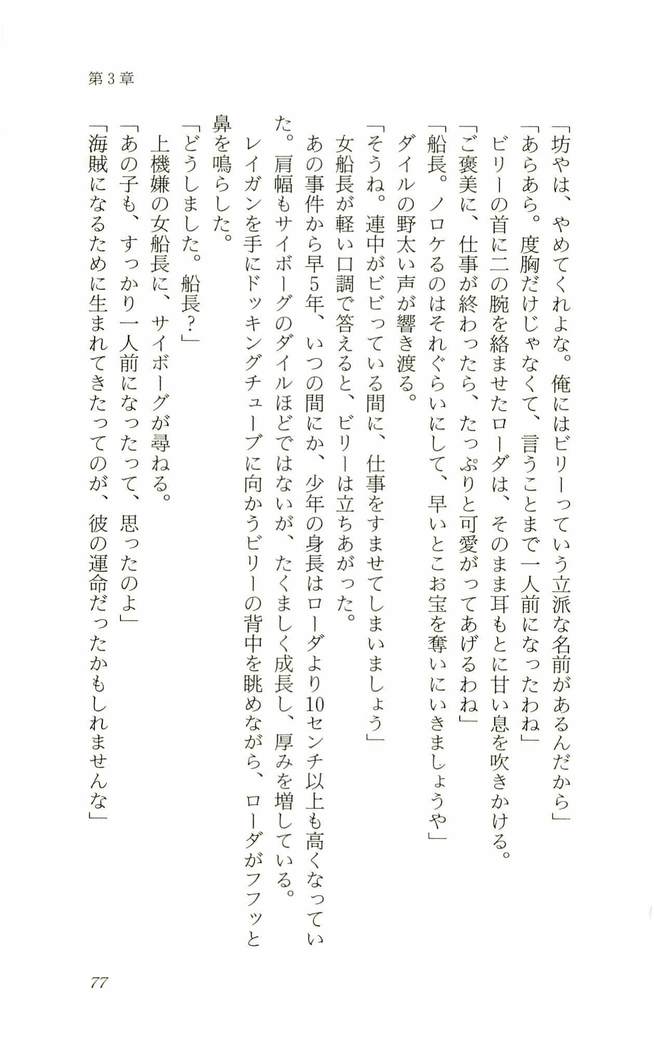 第3章
「坊やは、やめてくれよな。俺にはビリーっていう立派な名前があるんだから」
「あらあら。度胸だけじゃなくて、言うことまで一人前になったわね」
ビリーの首に二の腕を絡ませたローダは、そのまま耳もとに甘い息を吹きかける。
「ご褒美に、仕事が終わったら、たっぷりと可愛がってあげるわね」
「船長。ノロケるのはそれぐらいにして、早いとこお宝を奪いにいきましょうや」
ダイルの野太い声が響き渡る。
「そうね。連中がビビっている間に、仕事をすませてしまいましょう」
女船長が軽い口調で答えると、ビリーは立ちあがった。
あの事件から早5年、いつの間にか、少年の身長はローダより10センチ以上も高くなってい
た。肩幅もサイボーグのダイルほどではないが、たくましく成長し、厚みを増している。
レイガンを手にドッキングチューブに向かうビリーの背中を眺めながら、ローダがフフッと
鼻を鳴らした。
「どうしました。船長?」
上機嫌の女船長に、サイボーグが尋ねる。
「あの子も、すっかり一人前になったって、思ったのよ」
「海賊になるために生まれてきたってのが、彼の運命だったかもしれませんな」
77